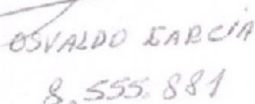 OSVALDO GARCIA
8.555.881